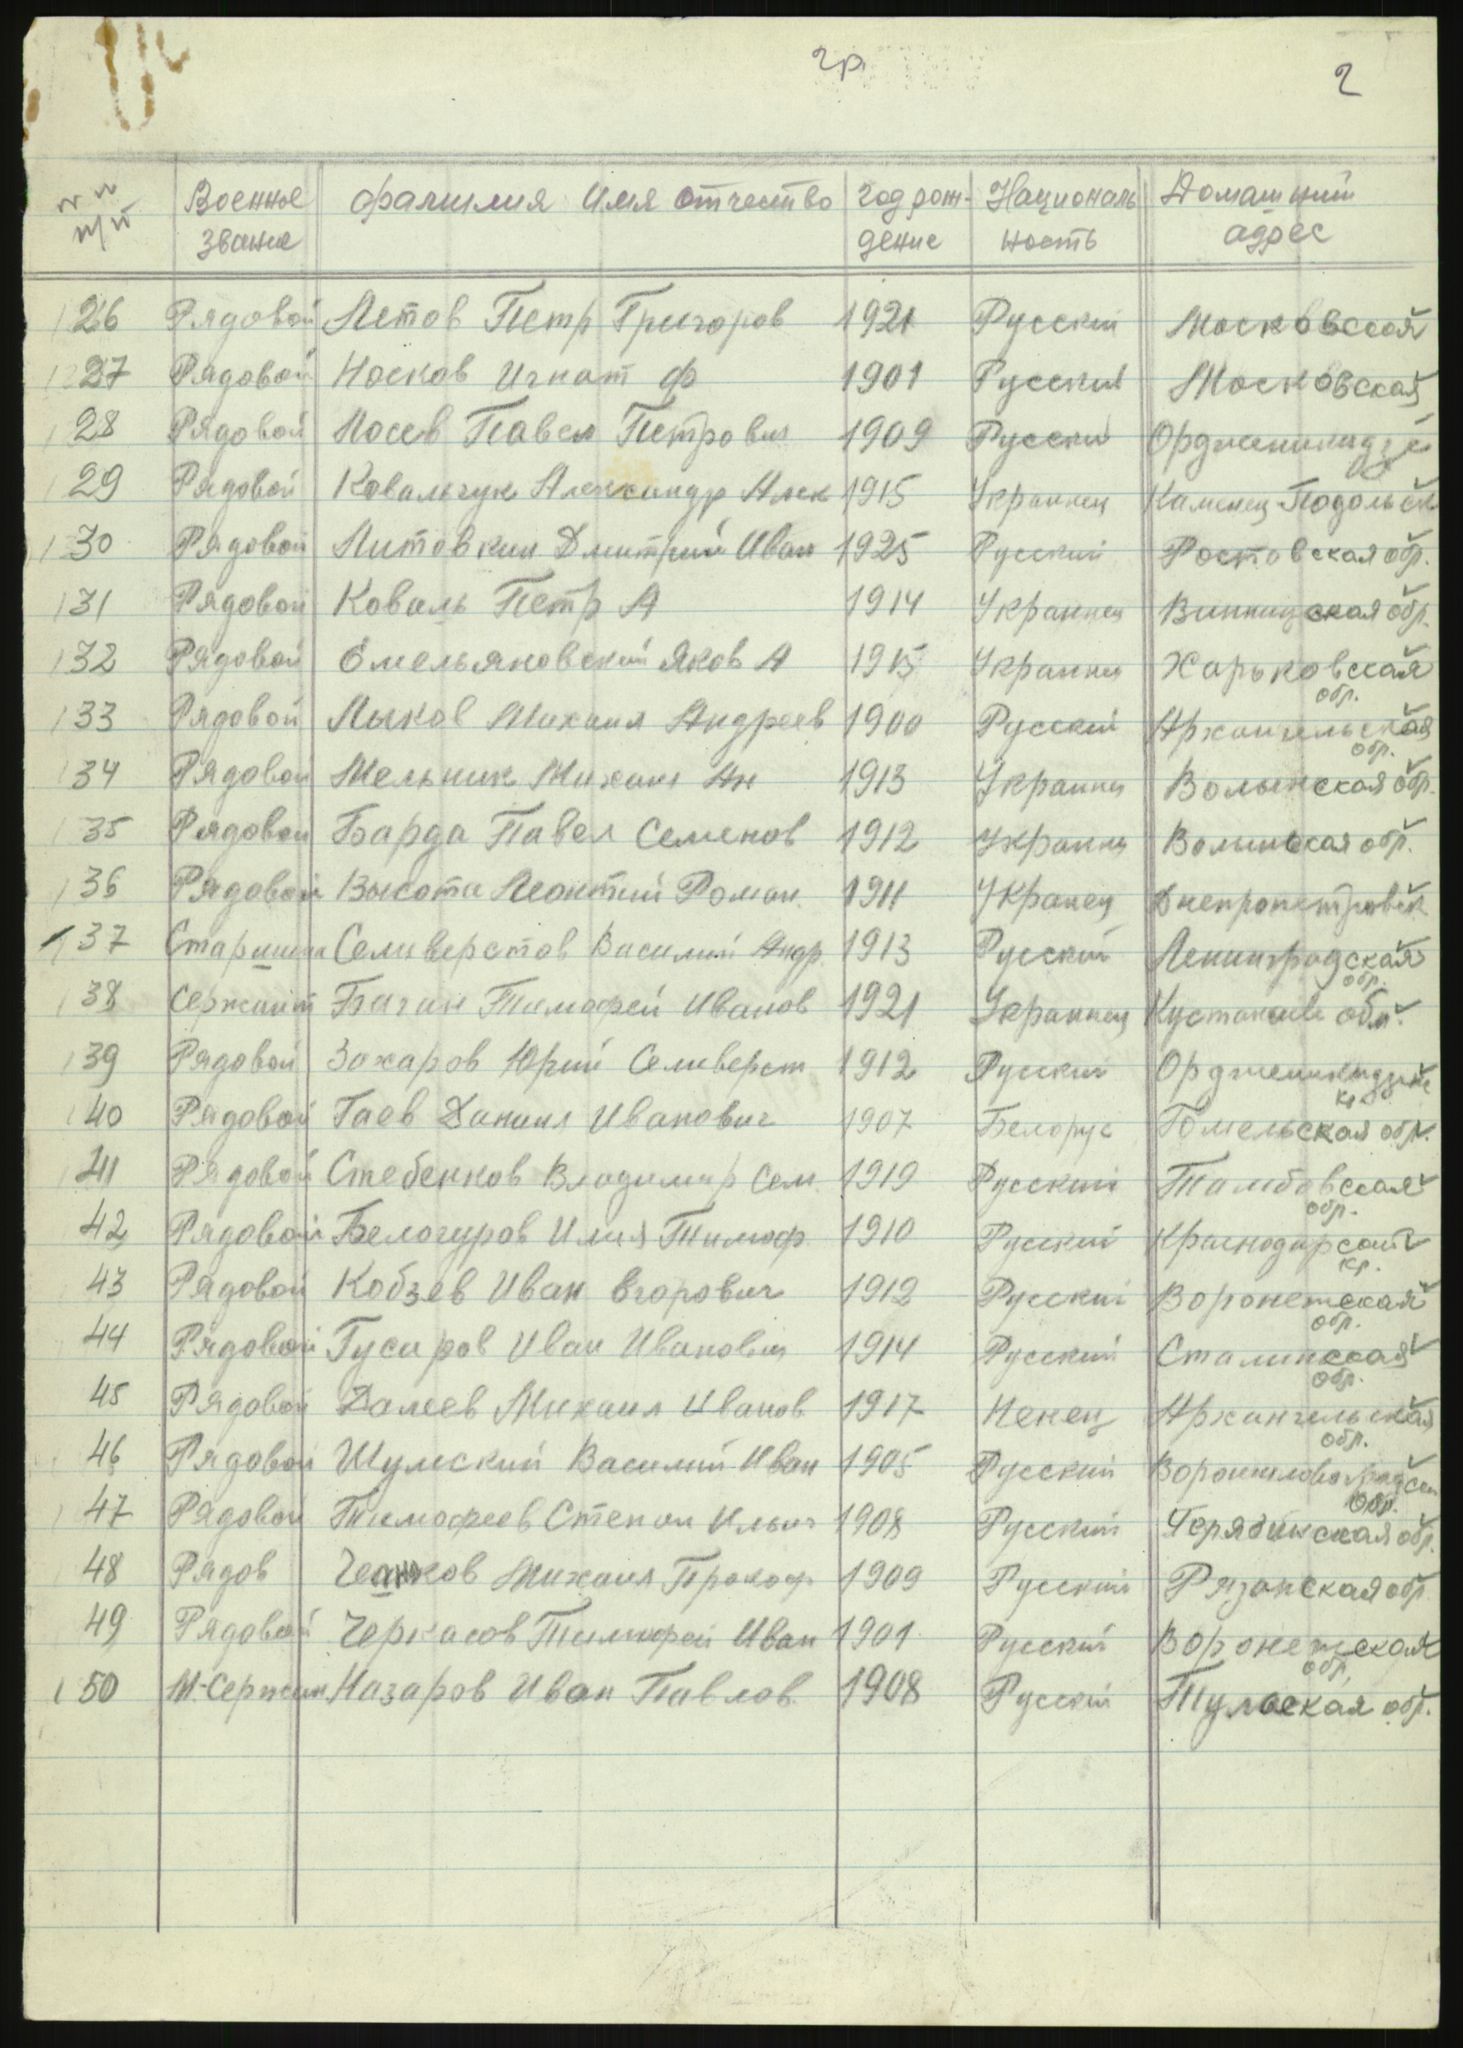 гр.
2
№ № п/п Военное звание Фамилия Имя Отчество Год рождение Националь ность Домашний адрес
26 Рядовой Летов Петр Григоров 1921 Русский Московская
27 Рядовой Носков Игнат Ф 1901 Русский Московская
28 Рядовой Лосев Павел Петрович 1909 Русский
29 Рядовой Ковальчук Александр Алек 1915 Украинец Каменец-Подольск
30 Рядовой Литовкин Дмитрий Иван 1925 Русский Ростовская обр.
31 Рядовой Коваль Петр А 1914 Украинец Винницкая обр.
32 Рядовой Омельяновский Яков А 1915 Украинец Харьковская обр.
33 Рядовой Лыков Михаил Андреев 1900 Русский Архангельская обр.
34 Рядовой Мельник Михаил Ан 1913 Украинец Волынская обр.
35 Рядовой Барда Павел Семенов 1912 Украинец Волынская обр.
36 Рядовой Высота Леонтий Роман. 1911 Украинец Днепропетровск
37 Старшина Селиверстов Василий Андр 1913 Русский Ленинградская обр.
38 Сержант Бичан Тимофей Иванов 1921 Украинец Кустанаев обл.
39 Рядовой Захаров Юрий Селиверст 1912 Русский кр.
40 Рядовой Гаев Данил Иванович 1907 Белорус Гомельская обр.
41 Рядовой Стебенков Владимир Сем 1919 Русский Тамбовская обр.
42 Рядовой Белогуров Илия Тимоф. 1910 Русский Краснодарский кр.
43 Рядовой Кобзев Иван Егорович 1912 Русский Воронежская обр.
44 Рядовой Гусаров Иван Иванович 1914 Русский Сталинская обр.
45 Рядовой Далеев Михаил Иванов 1917 Ненец Архангельская обр.
46 Рядовой Шумский Василий Иван 1905 Русский обр.
47 Рядовой Тимофеев Степан Ильич 1908 Русский обр.
48 Рядов Михаил Прокоф. 1909 Русский Рязанская обр.
49 Рядовой Черкасов Тимофей Иван 1901 Русский Воронежская обр.
50 М-Сержан Назаров Иван Павлов 1908 Русский Тульская обр.